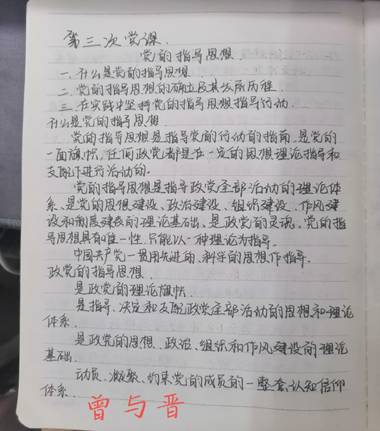 第三次党课
党的指导思想
一.什么是党的指导思想
二.党的指导思想的确立及其发展历程
三.在实践中坚持党的指导思想指导行动
什么是党的指导思想
党的指导思想是指导党的行动的指南,是党的
一面旗帜,任何政党都是在一定的思想理论指导和
支配下进行活动的.
党的指导思想是指导政党全部活动的理论体
系,是党的思想建设、政治建设、组织建设、作风建
设和制度建设的理论基础,是政党的灵魂.党的指
导思想具有唯一性,只能以一种理论为指导.
中国共产党一贯用先进的、科学的思想作指导.
政党的指导思想.
是政党的理论旗帜
是指导、决定和支配政党全部活动的思想和理论
体系.
是政党的思想、政治、组织和作风建设的理论
基础.
动员、凝聚、约束党的成员的一整套认知信仰
体系.
曾与晋